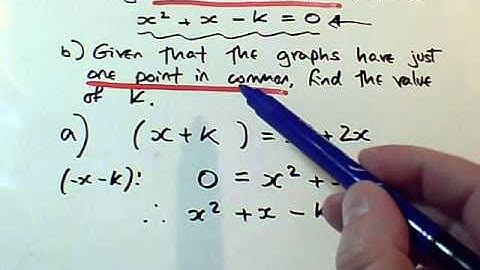 x² + x - k = 0 ←
b) Given that the graphs have just
one point in common, find the value
of k.
a) (x + k ) = + 2x
(-x-k): 0 = x² +
∴ x² + x - k